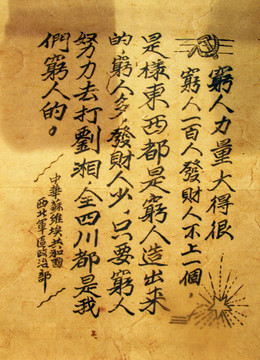 窮人力量大得很
窮人一百人發財人不上一個，
是樣東西都是窮人造出來
的，窮人多，發財人少，只要窮人
努力去打劉湘，全四川都是我
們窮人的。
中華蘇維埃共和國
西北軍區政治部